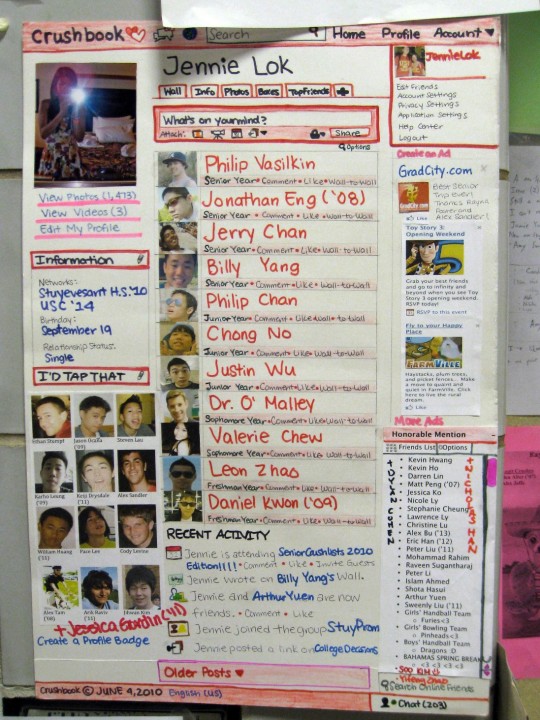 Crushbook
Search
Home Profile Account
Jennie Lok
JennieLok
Wall Info Photos Boxes TopFriends +
Edit Friends
Account Settings
Privacy Settings
Application Settings
Help Center
Logout
What's on your mind?
Attach:
Share
Options
View Photos (1,473)
View Videos (3)
Edit My Profile
Information
Networks:
Stuyvesant H.S.'10
USC '14
Birthday:
September 19
Relationship Status:
Single
I'D TAP THAT
Ethan Stumpf Jason Scalfa ('09) Steven Leu
Karho Leung Kenji Drysdale ('11) Alex Sandler
William Huang ('11) Pace Lee Cody Levine
Alex Tam ('08) Arik Motiv ('11) Jiwon Kim
+Jessica Gordin('11)
Create a Profile Badge
Philip Vasilkin
Senior Year • Comment • Like • Wall-to-Wall
Jonathan Eng ('08)
Senior Year • Comment • Like • Wall-to-Wall
Jerry Chan
Senior Year • Comment • Like • Wall-to-Wall
Billy Yang
Senior Year • Comment • Like • Wall-to-Wall
Philip Chan
Junior Year • Comment • Like • Wall-to-Wall
Chong No
Junior Year • Comment • Like • Wall-to-Wall
Justin Wu
Junior Year • Comment • Like • Wall-to-Wall
Dr. O'Malley
Sophomore Year • Comment • Like • Wall-to-Wall
Valerie Chew
Sophomore Year • Comment • Like • Wall-to-Wall
Leon Zhao
Freshman Year • Comment • Like • Wall-to-Wall
Daniel Kwon ('09)
Freshman Year • Comment • Like • Wall-to-Wall
RECENT ACTIVITY
Jennie is attending Senior Crushlists 2010
Edition!!!! • Comment • Like • Invite Guests
Jennie wrote on Billy Yang's Wall.
Jennie and Arthur Yuen are now
friends. • Comment • Like
Jennie joined the group StuyProm
Jennie posted a link on College Decisions
Older Posts
Create an Ad
GradCity.com
Best Senior
Trip ever!
Alex Sandler!
Like
Toy Story 3:
Opening Weekend
Grab your best friends
and go to infinity and
beyond when you see Toy
Story 3 opening weekend.
RSVP today!
RSVP to this event
Fly to your Happy
Place
FARMVILLE
Haystacks, plum trees,
and picket fences... Make
a move to quaint and
quiet in FarmVille. Click
here to live the rural
dream.
Like
More Ads
Honorable Mention
Friends List Options
Kevin Hwang
Kevin Ho
Darren Lin
Matt Peng ('07)
Jessica Ko
Nicole Ly
Stephanie Cheung
Lawrence Ly
Christine Lu
Alex Bu ('13)
Eric Han ('12)
Peter Liu ('11)
Mohammad Rahim
Raveen Sugantharaj
Peter Li
Islam Ahmed
Shota Hasui
Arthur Yuen
Sweenly Liu ('11)
Girls' Handball Team
Furies<3
Girls' Bowling Team
Pinheads<3
Boys' Handball Team
Dragons :D
BAHAMAS SPRING BREAK
<3 <3 <3 <3
+NICHOLAS HAN
Search Online Friends
Chat (203)
Crushbook © JUNE 4, 2010 English (US)